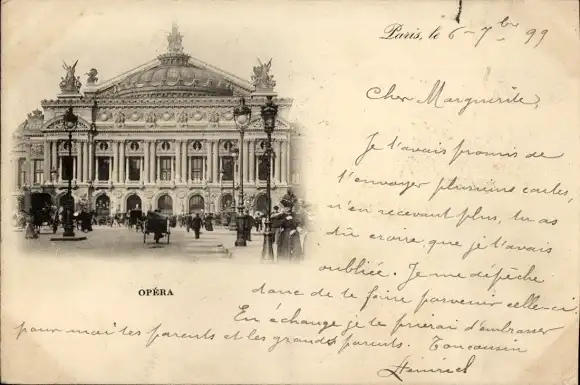 Paris, le 6-7bre 99
Cher Marguerite,
Je t'avais promis de
t'envoyer plusieurs cartes,
n'en recevant plus, tu as
dû croire que je t'avais
oubliée. Je me dépêche
donc de te faire parvenir celle-ci.
En échange je te prierai d'embrasser
pour moi tes parents et les grands parents. Ton cousin
OPÉRA